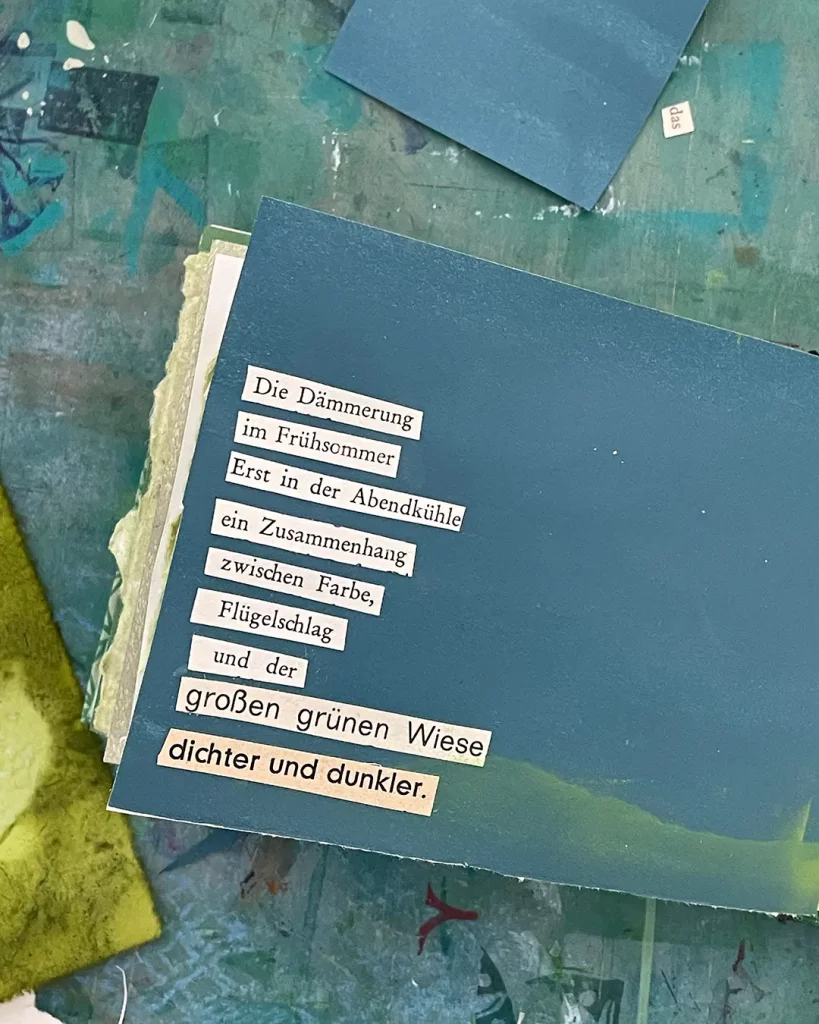 das
Die Dämmerung
im Frühsommer
Erst in der Abendkühle
ein Zusammenhang
zwischen Farbe,
Flügelschlag
und der
großen grünen Wiese
dichter und dunkler.